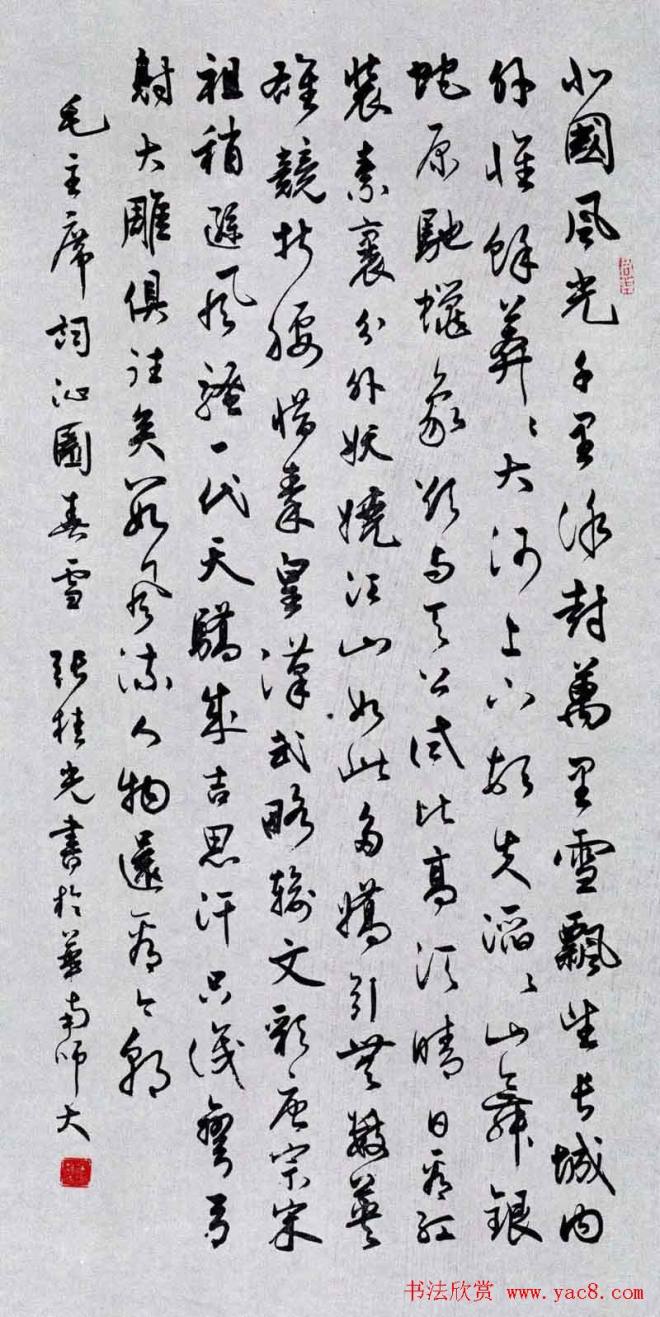 北國風光千里冰封萬里雪飄望長城內
外惟餘莽〻大河上下頓失滔〻山舞銀
蛇原馳蠟象欲與天公試比高須晴日看紅
裝素裹分外妖嬈江山如此多嬌引無數英
雄競折腰惜秦皇漢武略輸文彩唐宗宋
祖稍遜風騷一代天驕成吉思汗只識彎弓
射大雕俱往矣數風流人物還看今朝
毛主席詞沁園春雪 張桂光書於華南師大
书法欣赏 www.yac8.com